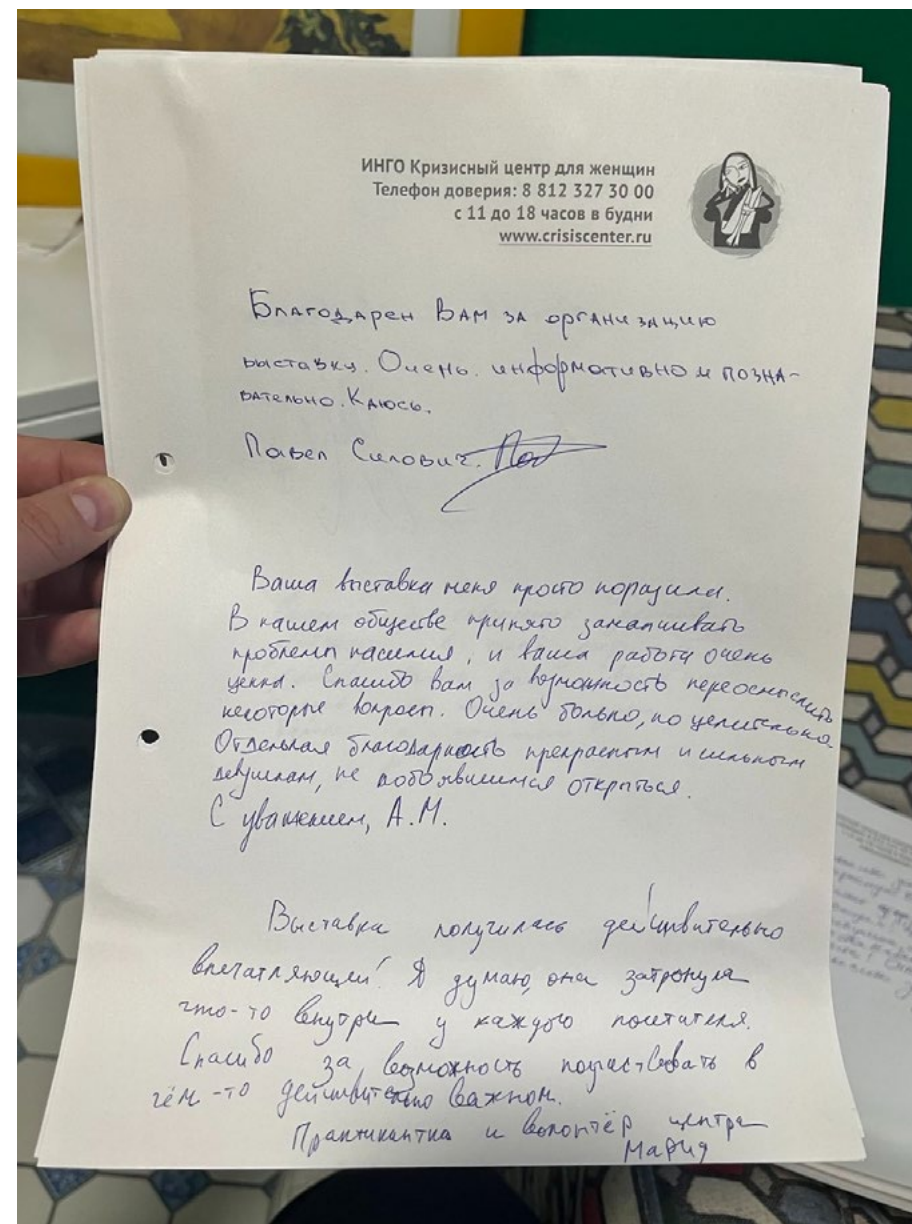 ИНГО Кризисный центр для женщин
Телефон доверия: 8 812 327 30 00
с 11 до 18 часов в будни
www.crisiscenter.ru
Благодарен Вам за организацию
выставки. Очень. информативно и позна-
вательно. Каюсь.
Павел Силович.
Ваша выставка меня просто поразила.
В нашем обществе принято замалчивать
проблемы насилия, и ваша работа очень
ценна. Спасибо вам за возможность переосмыслить
некоторые вопросы. Очень больно, но целительно.
Отдельная благодарность прекрасным и сильным
девушкам, не побоявшимся открыться.
С уважением, А.М.
Выставка получилась действительно
впечатляющей! Я думаю, она затронула
что-то внутри у каждого посетителя.
Спасибо за возможность поучаствовать в
чём-то действительно важном.
Практикантка и волонтёр центра
Мария